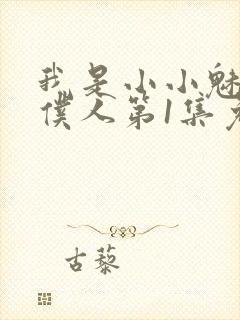 我是小小魅
僕人第1集
古藜